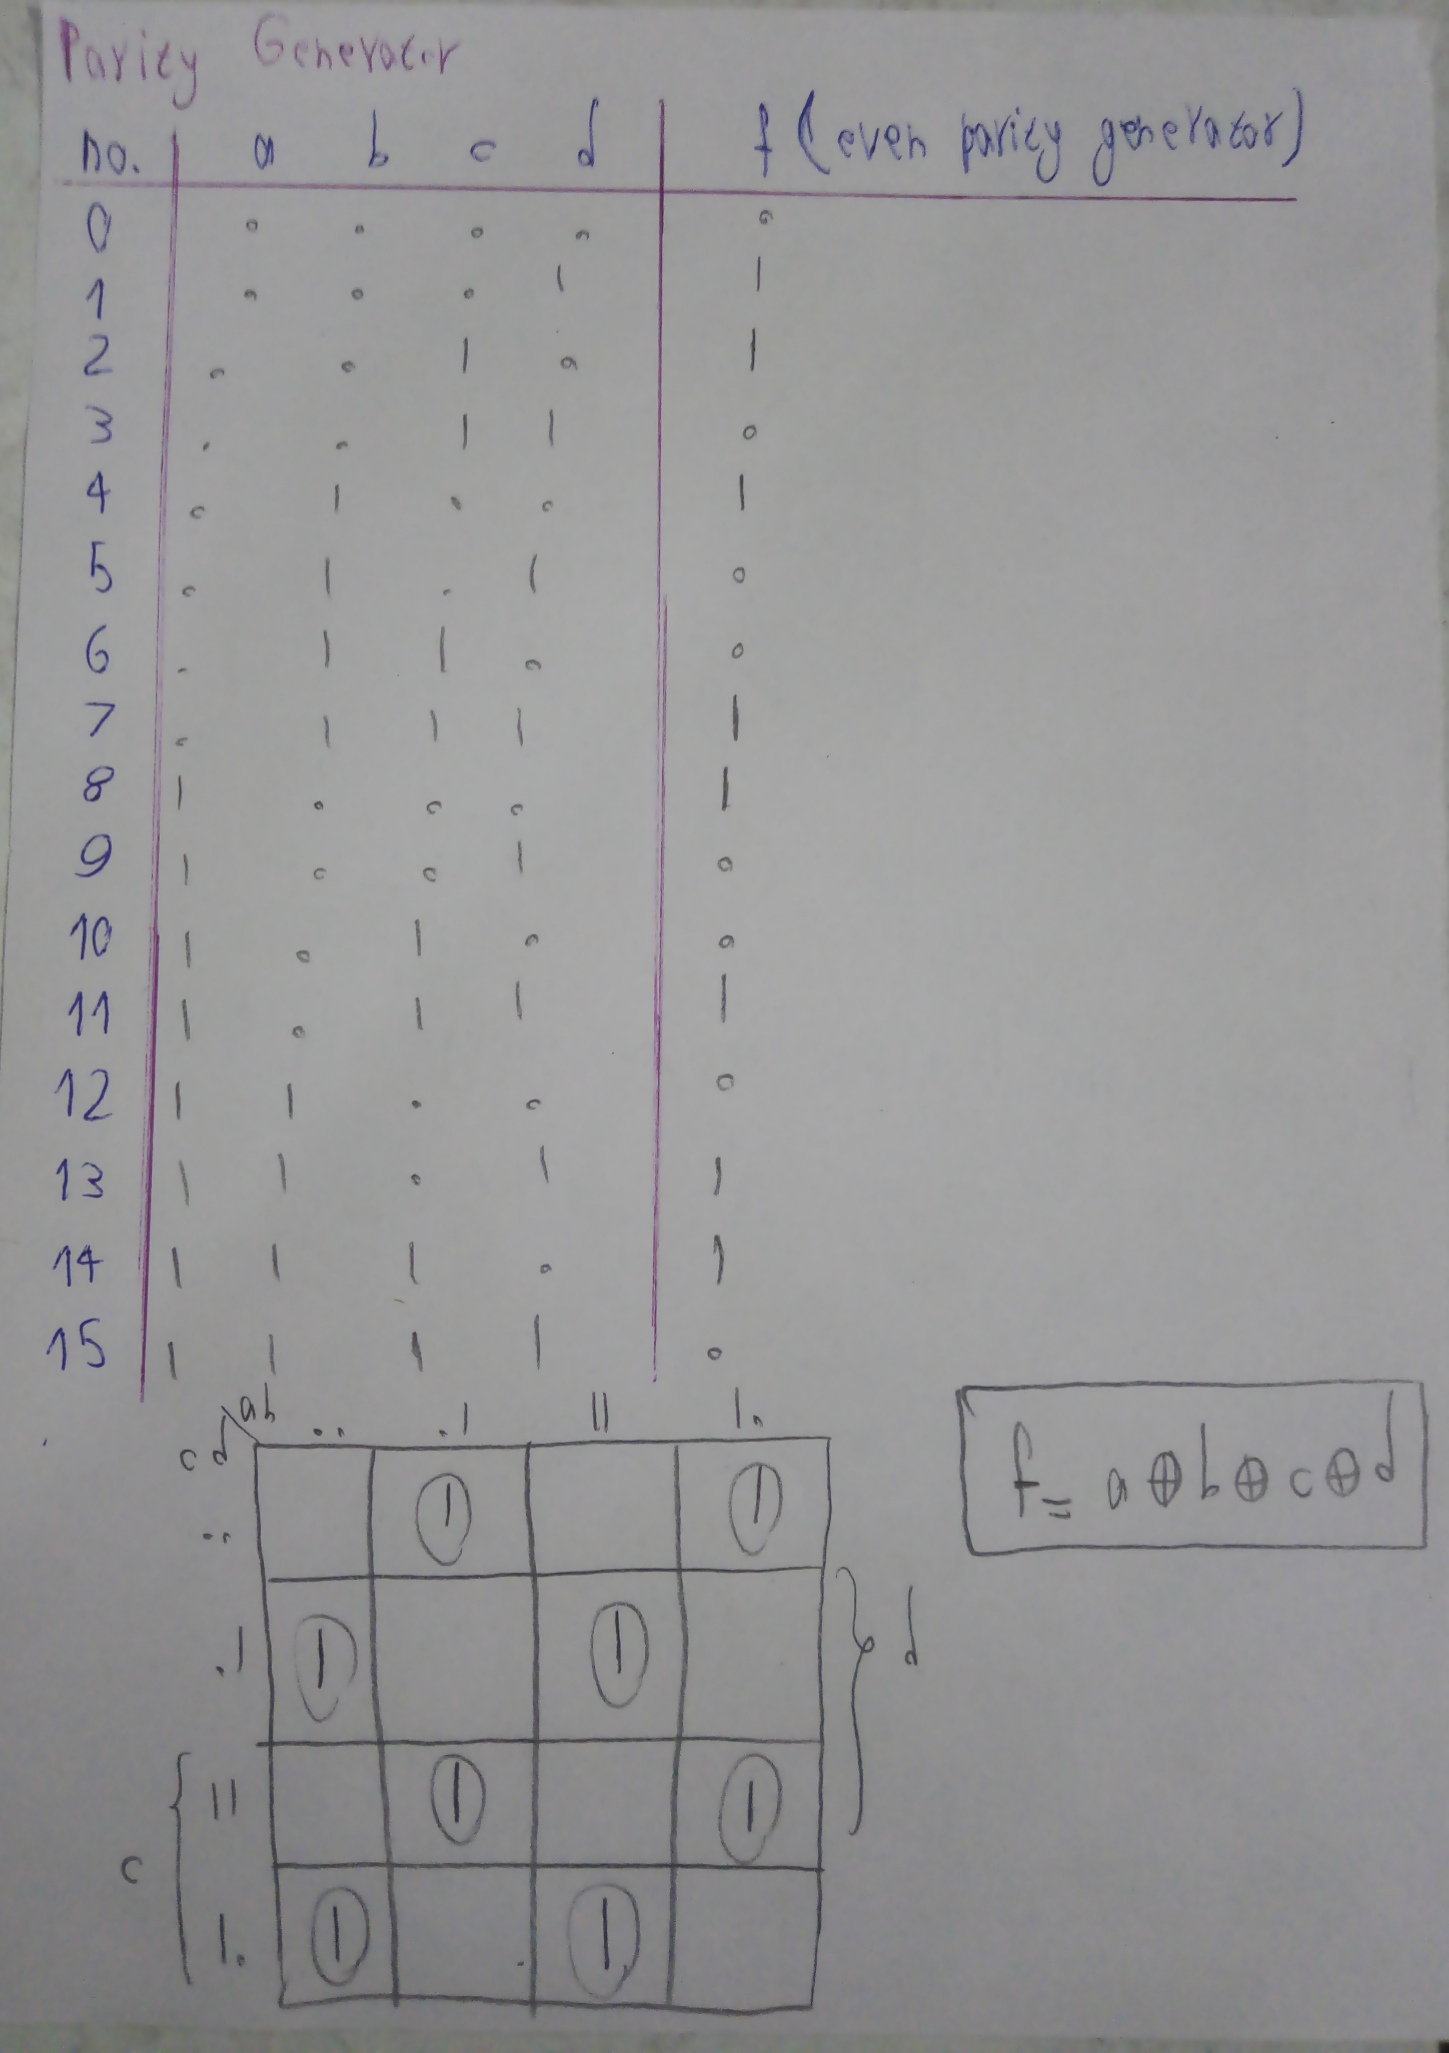 Parity Generator
no. a b c d f (even parity generator)
0 0 0 0 0 0
1 0 0 0 1 1
2 0 0 1 0 1
3 0 0 1 1 0
4 0 1 0 0 1
5 0 1 0 1 0
6 0 1 1 0 0
7 0 1 1 1 1
8 1 0 0 0 1
9 1 0 0 1 0
10 1 0 1 0 0
11 1 0 1 1 1
12 1 1 0 0 0
13 1 1 0 1 1
14 1 1 1 0 1
15 1 1 1 1 0
ab 00 01 11 10
cd
00 1 1
01 1 1 d
11 1 1
c
10 1 1
f = a ⊕ b ⊕ c ⊕ d